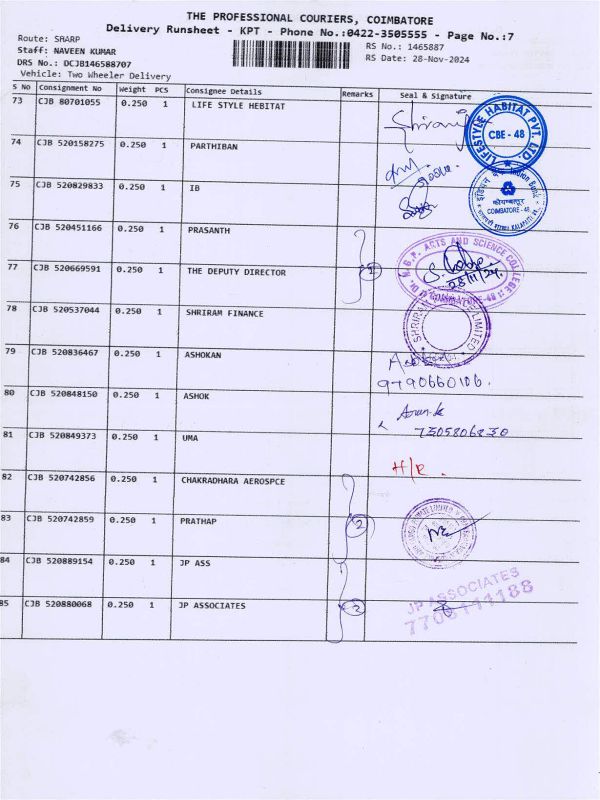 THE PROFESSIONAL COURIERS, COIMBATORE
Delivery Runsheet - KPT - Phone No.:0422-3505555 - Page No.:7
Route: SHARP
RS No.: 1465887
Staff: NAVEEN KUMAR
RS Date: 28-Nov-2024
DRS No.: DCJB146588707
Vehicle: Two Wheeler Delivery
S No Consignment No Weight PCS Consignee Details Remarks Seal & Signature
73 CJB 80701055 0.250 1 LIFE STYLE HEBITAT
LIFESTYLE HABITAT PVT. LTD.
CBE - 48
74 CJB 520158275 0.250 1 PARTHIBAN
75 CJB 520829833 0.250 1 IB
Indian Bank
COIMBATORE - 48
76 CJB 520451166 0.250 1 PRASANTH
ARTS AND SCIENCE COLLEGE
77 CJB 520669591 0.250 1 THE DEPUTY DIRECTOR
2
28/11/24
78 CJB 520537044 0.250 1 SHRIRAM FINANCE
SHRIRAM FINANCE LIMITED
79 CJB 520836467 0.250 1 ASHOKAN
9790660106.
80 CJB 520848150 0.250 1 ASHOK
7305806830
81 CJB 520849373 0.250 1 UMA
H/R.
82 CJB 520742856 0.250 1 CHAKRADHARA AEROSPCE
83 CJB 520742859 0.250 1 PRATHAP
2
84 CJB 520889154 0.250 1 JP ASS
85 CJB 520880068 0.250 1 JP ASSOCIATES
2
JP ASSOCIATES